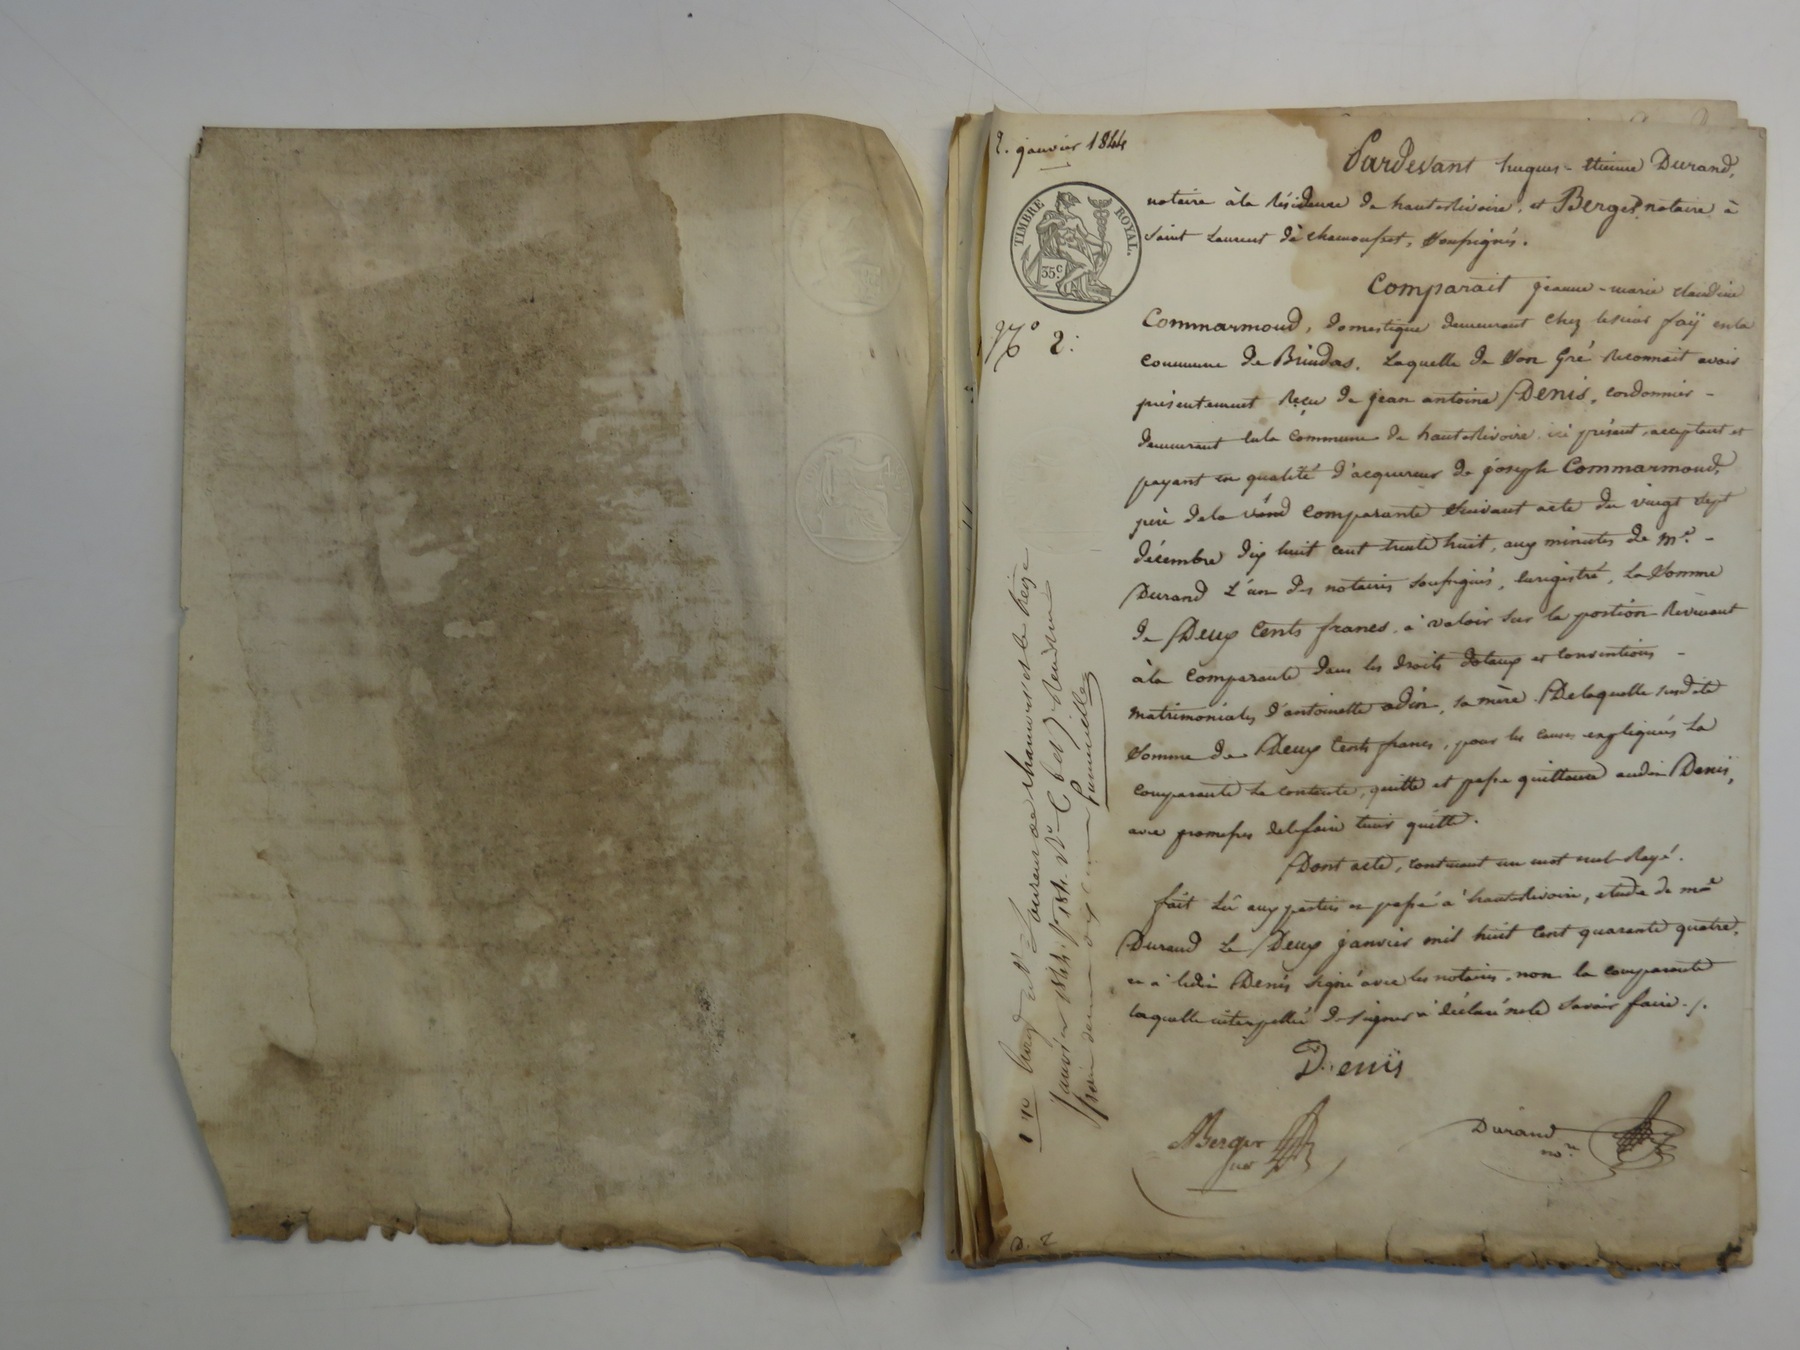 2. janvier 1844
TIMBRE ROYAL.
35c.
No 2:
Pardevant hugues-etienne Durand,
notaire à la résidence de hauterivoire, et Berger, notaire à
saint Laurent de chamousset, soussignés.
Comparait jeanne-marie claudine
Commarmond, domestique demeurant chez le sieur faÿ en la
commune de Brindas. Laquelle de son Gré reconnait avoir
présentement reçu de jean antoine Denis, cordonnier -
demeurant en la commune de hauterivoire ici présent, acceptant et
payant en qualité d'acquereur de joseph Commarmond,
père de la vend comparante suivant acte du vingt sept
décembre dix huit cent trente huit, aux minutes de me. -
Durand L'un des notaires soussignés, enregistré, La Somme
de Deux Cents francs, à valoir sur la portion revenant
à la comparante dans les droits dotaux et conventions -
matrimoniales d'antoinette odin, sa mère. De laquelle susdite
somme de Deux Cents francs, pour les causes expliquées La
comparante se contente, quitte et passe quittance audit Denis,
avec promesse de le faire tenir quitte.
Dont acte, contenant un mot nul rayé.
fait Lû aux parties et passé à hauterivoire, etude de me
Durand Le Deux janvier mil huit cent quarante quatre,
et a ledit Denis signé avec les notaires, non la comparante
laquelle interpellée de signer a déclaré ne le savoir faire ./.
Denis
Berger
not
Durand
no.re
D. 2
St Laurent de Chamousset le treize
janvier 1844. fo 184. Vo C. 6 et 7. Reçu deux